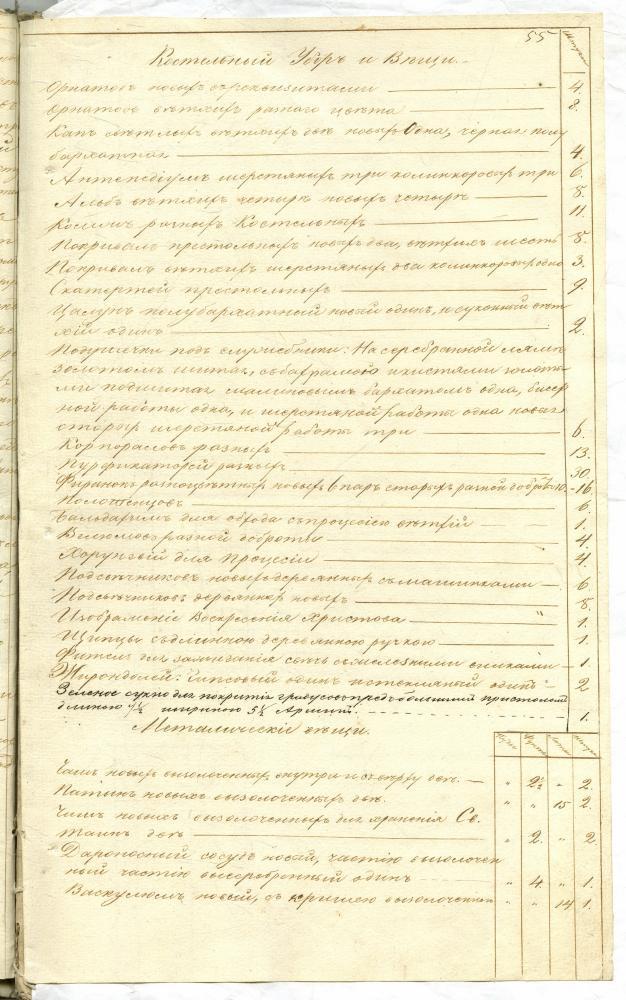 55
Костельный Убѣръ и Вещи.
Штуки
Орнатовъ новыхъ съ реквизитами 4.
Орнатовъ вѣтхихъ разнаго цвѣта 8.
Капъ свѣтлыхъ вѣтхихъ двѣ новыхъ одна, черная полу
бархатная 4.
Антепедіумъ шерстяныхъ три коминкоровыхъ три 6.
Альбъ вѣтхихъ четыре новыхъ четыре 8.
Комшъ разныхъ Костельныхъ 11.
Покривалъ престольныхъ новыхъ два, вѣтхихъ шесть 8.
Покривалъ вѣтхихъ шерстяныхъ два коминкоровыхъ одно 3.
Скатертей престольныхъ 9.
Цалунъ полубархатный новый одинъ, и суконный вѣт
хій одинъ 2.
Подушечки подъ служебники: На серебранной лямѣ
золотомъ шитая, съ бахрамою и кистями золоты
ми подшитая малиновымъ бархатомъ одна, бисер
ной работы одна, и шерстяной работы одна новая
старыхъ шерстяной работы три 6.
Корпораловъ разныхъ 13.
Пурификаторей разныхъ 30.
Фиранокъ разноцвѣтныхъ новыхъ 6 паръ старыхъ разной доброты 10. 16.
Полотенцовъ 6.
Бальдахимъ для обхода съ процесіею вѣтхій 1.
Велюмовъ разной доброты 4.
Хорунгвій для Процесіи 4.
Подсвѣчниковъ новыхъ деревянныхъ съ машинками 6.
Подсвѣчниковъ деревянныхъ новыхъ 8.
Изображеніе Воскресенія Христова " 1.
Щипцы съ длинною деревянною ручкою 1.
Фитель для зажиганія сотъ съ желѣзными вилками 1.
Жирондолей: гипсовый одинъ и стеклянный одинъ 2
Зеленое сукно для покритія градусовъ предъ большимъ престоломъ
длиною 7½ шириною 5½ Аршинъ. 1.
Металическіе вѣщи.
Пуды Фунты Лоты Штуки
Чашъ новыхъ вызолоченныхъ внутри и съ верху двѣ. " 2½ " 2.
Патинъ новыхъ вызолоченныхъ двѣ. " " 15 2.
Чашъ новыхъ вызолоченныхъ для храненія Св.
Таинъ двѣ " 2. " 2.
Дароносный сосудъ новый, частію вызолочен
ный частію высеребренный одинъ " 4. " 1.
Васкулюмъ новый, съ кришею вызолоченный " " 14 1.